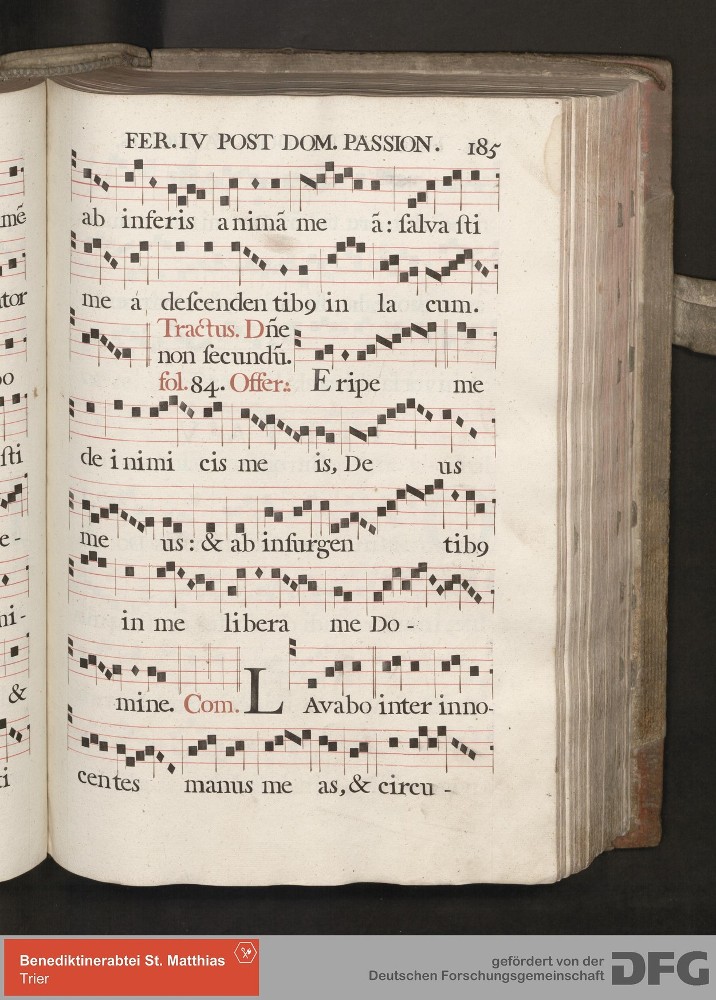 FER. IV POST DOM. PASSION. 185
ab inferis animã me ã: ſalva ſti
me á deſcenden tib9 in la cum.
Tractus. Dñe
non ſecundũ.
fol. 84. Offer.: Eripe me
de inimi cis me is, De us
me us: & ab inſurgen tib9
in me libera me Do -
mine. Com. LAvabo inter inno-
centes manus me as, & circu -
mẽ
ator
ſti
e-
ni-
&
Benediktinerabtei St. Matthias
Trier
gefördert von der
Deutschen Forschungsgemeinschaft
DFG